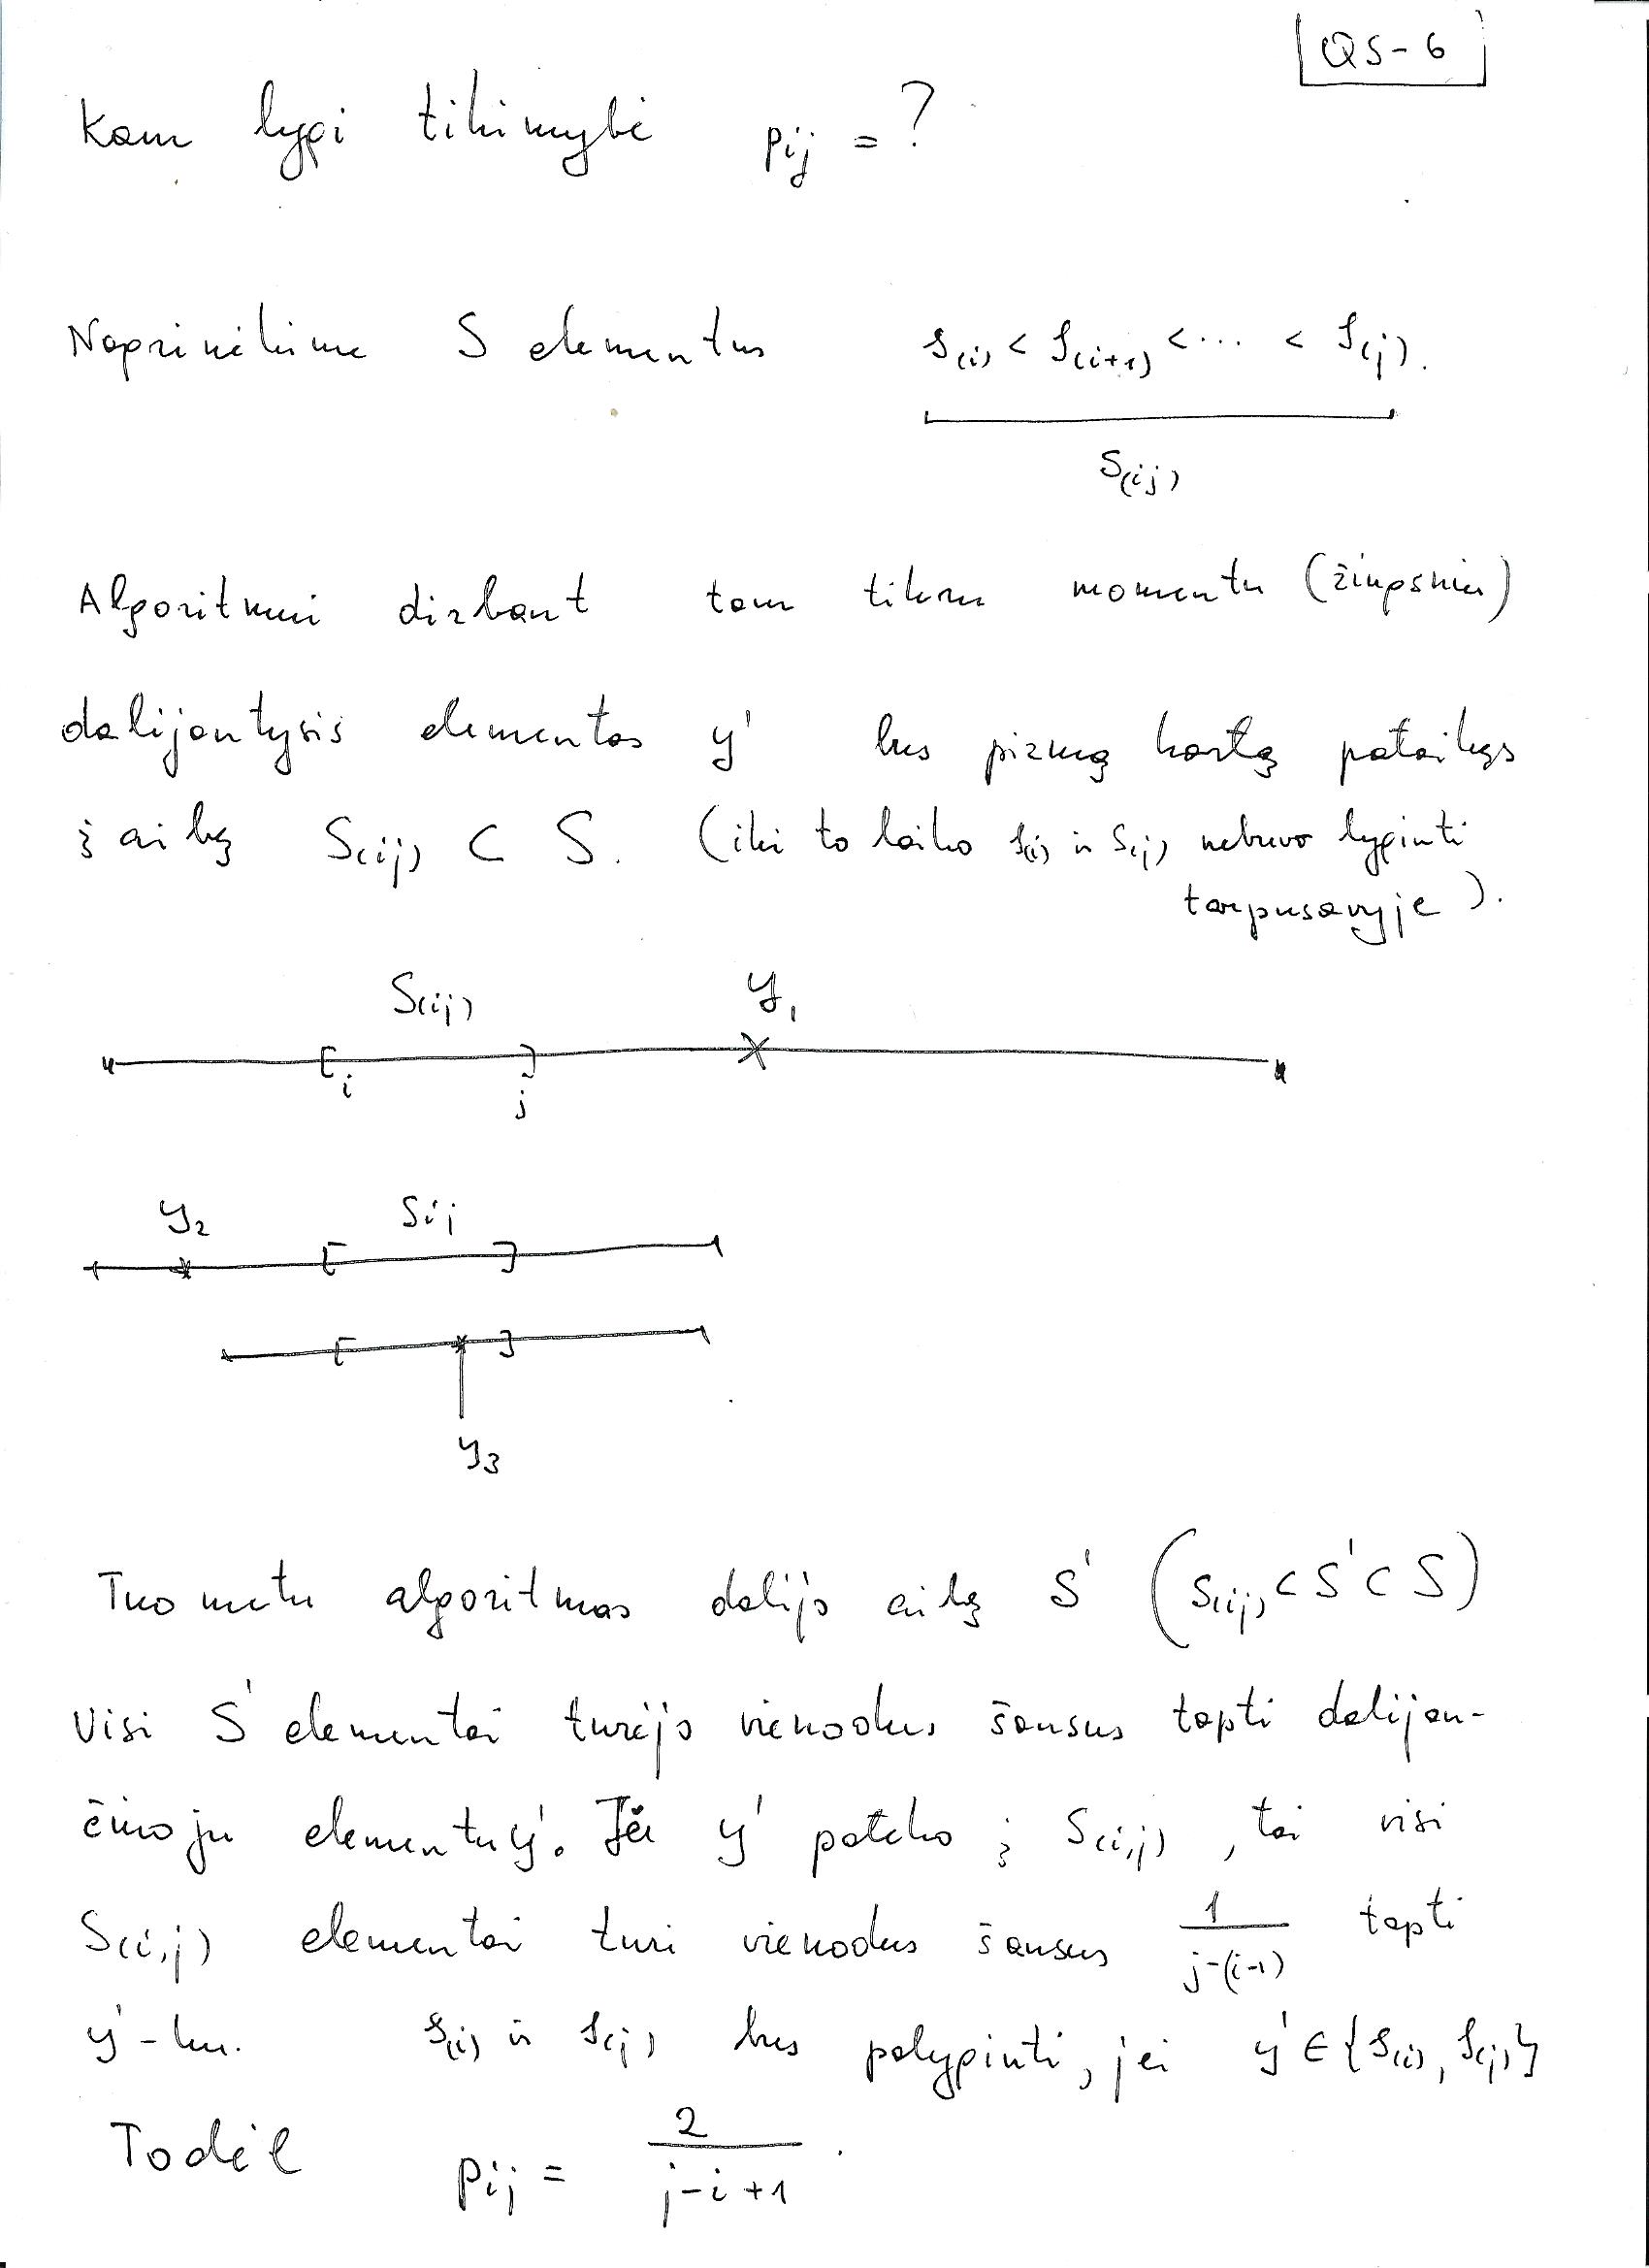 QS-6
Kam lygi tikimybė pij = ?
Nagrinėkime S elementus s(i) < s(i+1) < ... < s(j).
S(ij)
Algoritmui dirbant tam tikru momentu (žingsniu)
dalijantysis elementas y' bus pirmą kartą pataikęs
į aibę S(ij) ⊂ S. (iki to laiko s(i) ir s(j) nebuvo lyginti
tarpusavyje).
S(ij) y1
i j
y2 Sij
y3
Tuo metu algoritmas dalijo aibę S' (S(ij) ⊂ S' ⊂ S)
Visi S' elementai turėjo vienodus šansus tapti dalijan-
čiuoju elementu y'. Jei y' pateko į S(i,j), tai visi
S(i,j) elementai turi vienodus šansus 1/(j-(i-1)) tapti
y'-ku. s(i) ir s(j) bus palyginti, jei y' ∈ {s(i), s(j)}
Todėl pij = 2/(j-i+1).